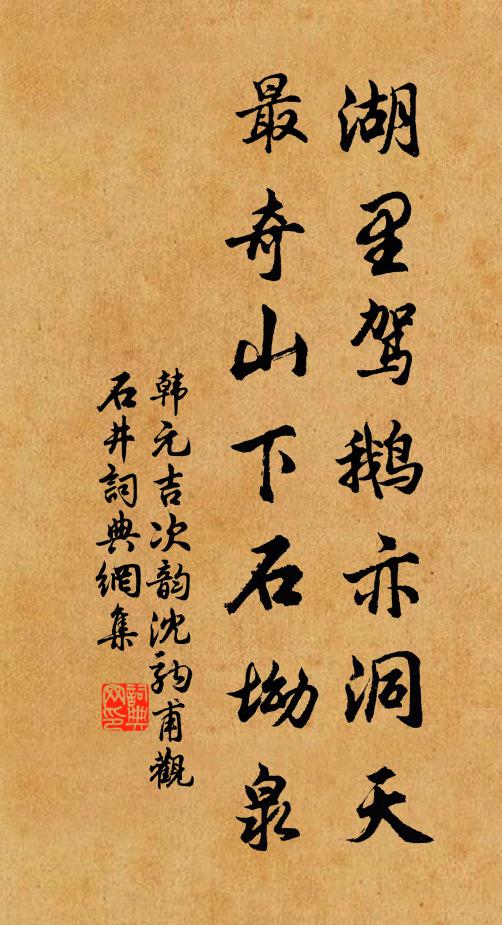 湖里驾鹅亦洞天
最奇山下石坳泉
韩元吉次韵沈驹甫觀
石井詞典網集
詞典网印